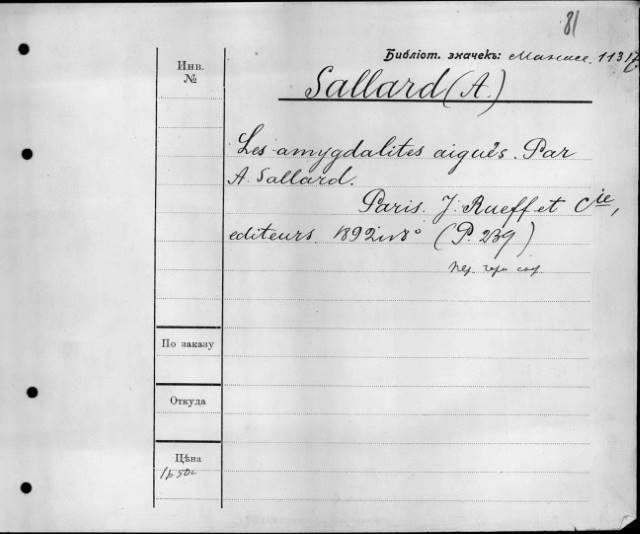 81
Библіот. значекъ: 11317.
Инв.
№
Sallard (A.)
Les amygdalites aiguës. Par
A. Sallard.
Paris. J. Rueff et Cie,
editeurs. 1892 in 8° (P. 239)
По заказу
Откуда
Цѣна